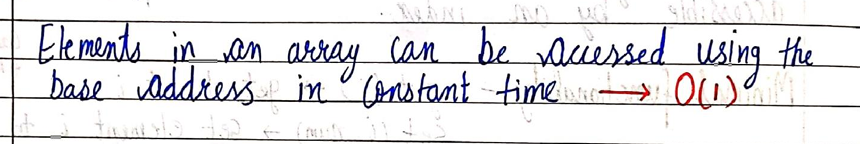 Elements in an array can be accessed using the
base address in constant time → O(1)